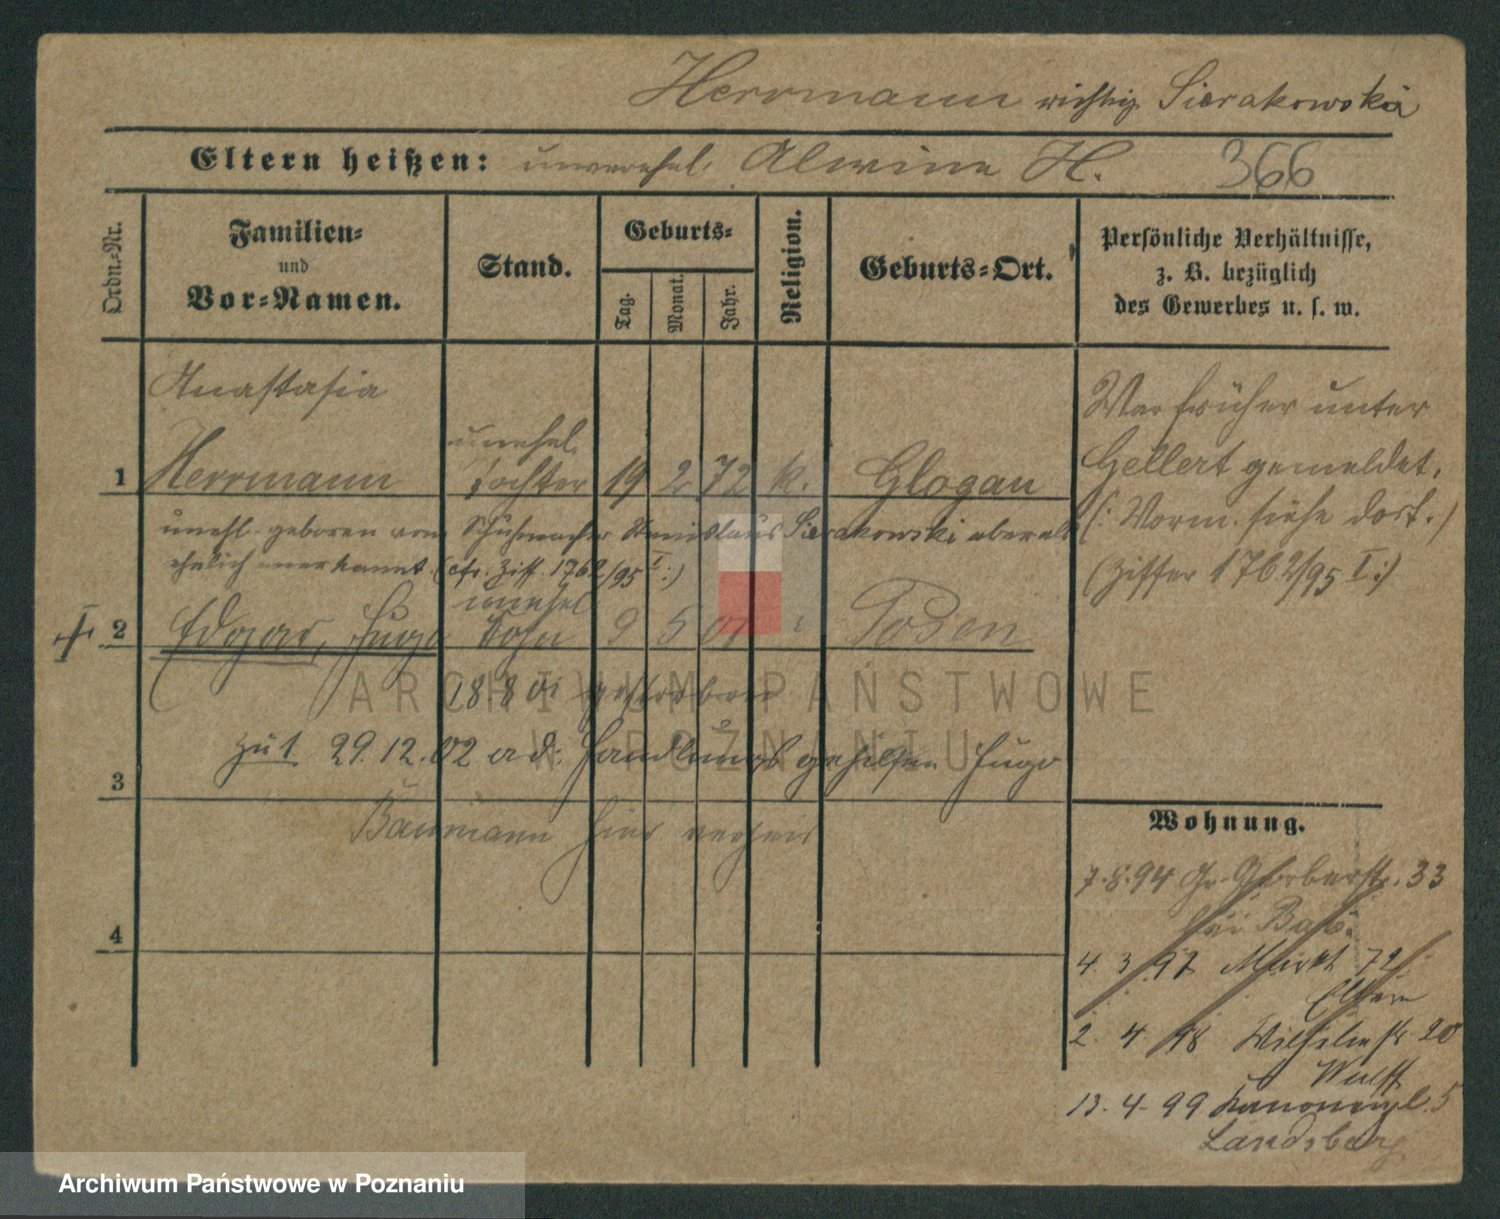 Herrmann richtig Sierakowska
Eltern heißen: unverehel. Alwine H. 366
Ordn.-Nr.
Familien-
und
Vor-Namen.
Stand.
Geburts-
Tag.
Monat.
Jahr.
Religion.
Geburts-Ort.
Persönliche Verhältnisse,
z. B. bezüglich
des Gewerbes u. s. w.
Anastasia
unehel.
1 Herrmann Tochter 19 2 72 k. Glogau
unehl. geboren vom Schuhmacher Stanislaus Sierakowski aber als
ehelich anerkannt. (cfr. Ziff. 1762/95 I:)
unehel.
2 Edgar, Hugo Sohn 9 5 01 Posen
18.8.01 gestorben
zu 1 29.12.02 a. d. Handlungsgehilfen Hugo
3
Baumann hier verheir
4
War früher unter
Gellert gemeldet.
(: Vorm. siehe dort.)
(Ziffer 1762/95 I:)
Wohnung.
7.8.94 Gr. Gerberstr. 33
bei
4. 3 97 Markt 72
Eltern
2. 4 98 Wilhelmstr. 20
Wulff
13. 4. 99 Kanonenpl. 5
Landsberg
ARCHIWUM PAŃSTWOWE
W POZNANIU
Archiwum Państwowe w Poznaniu